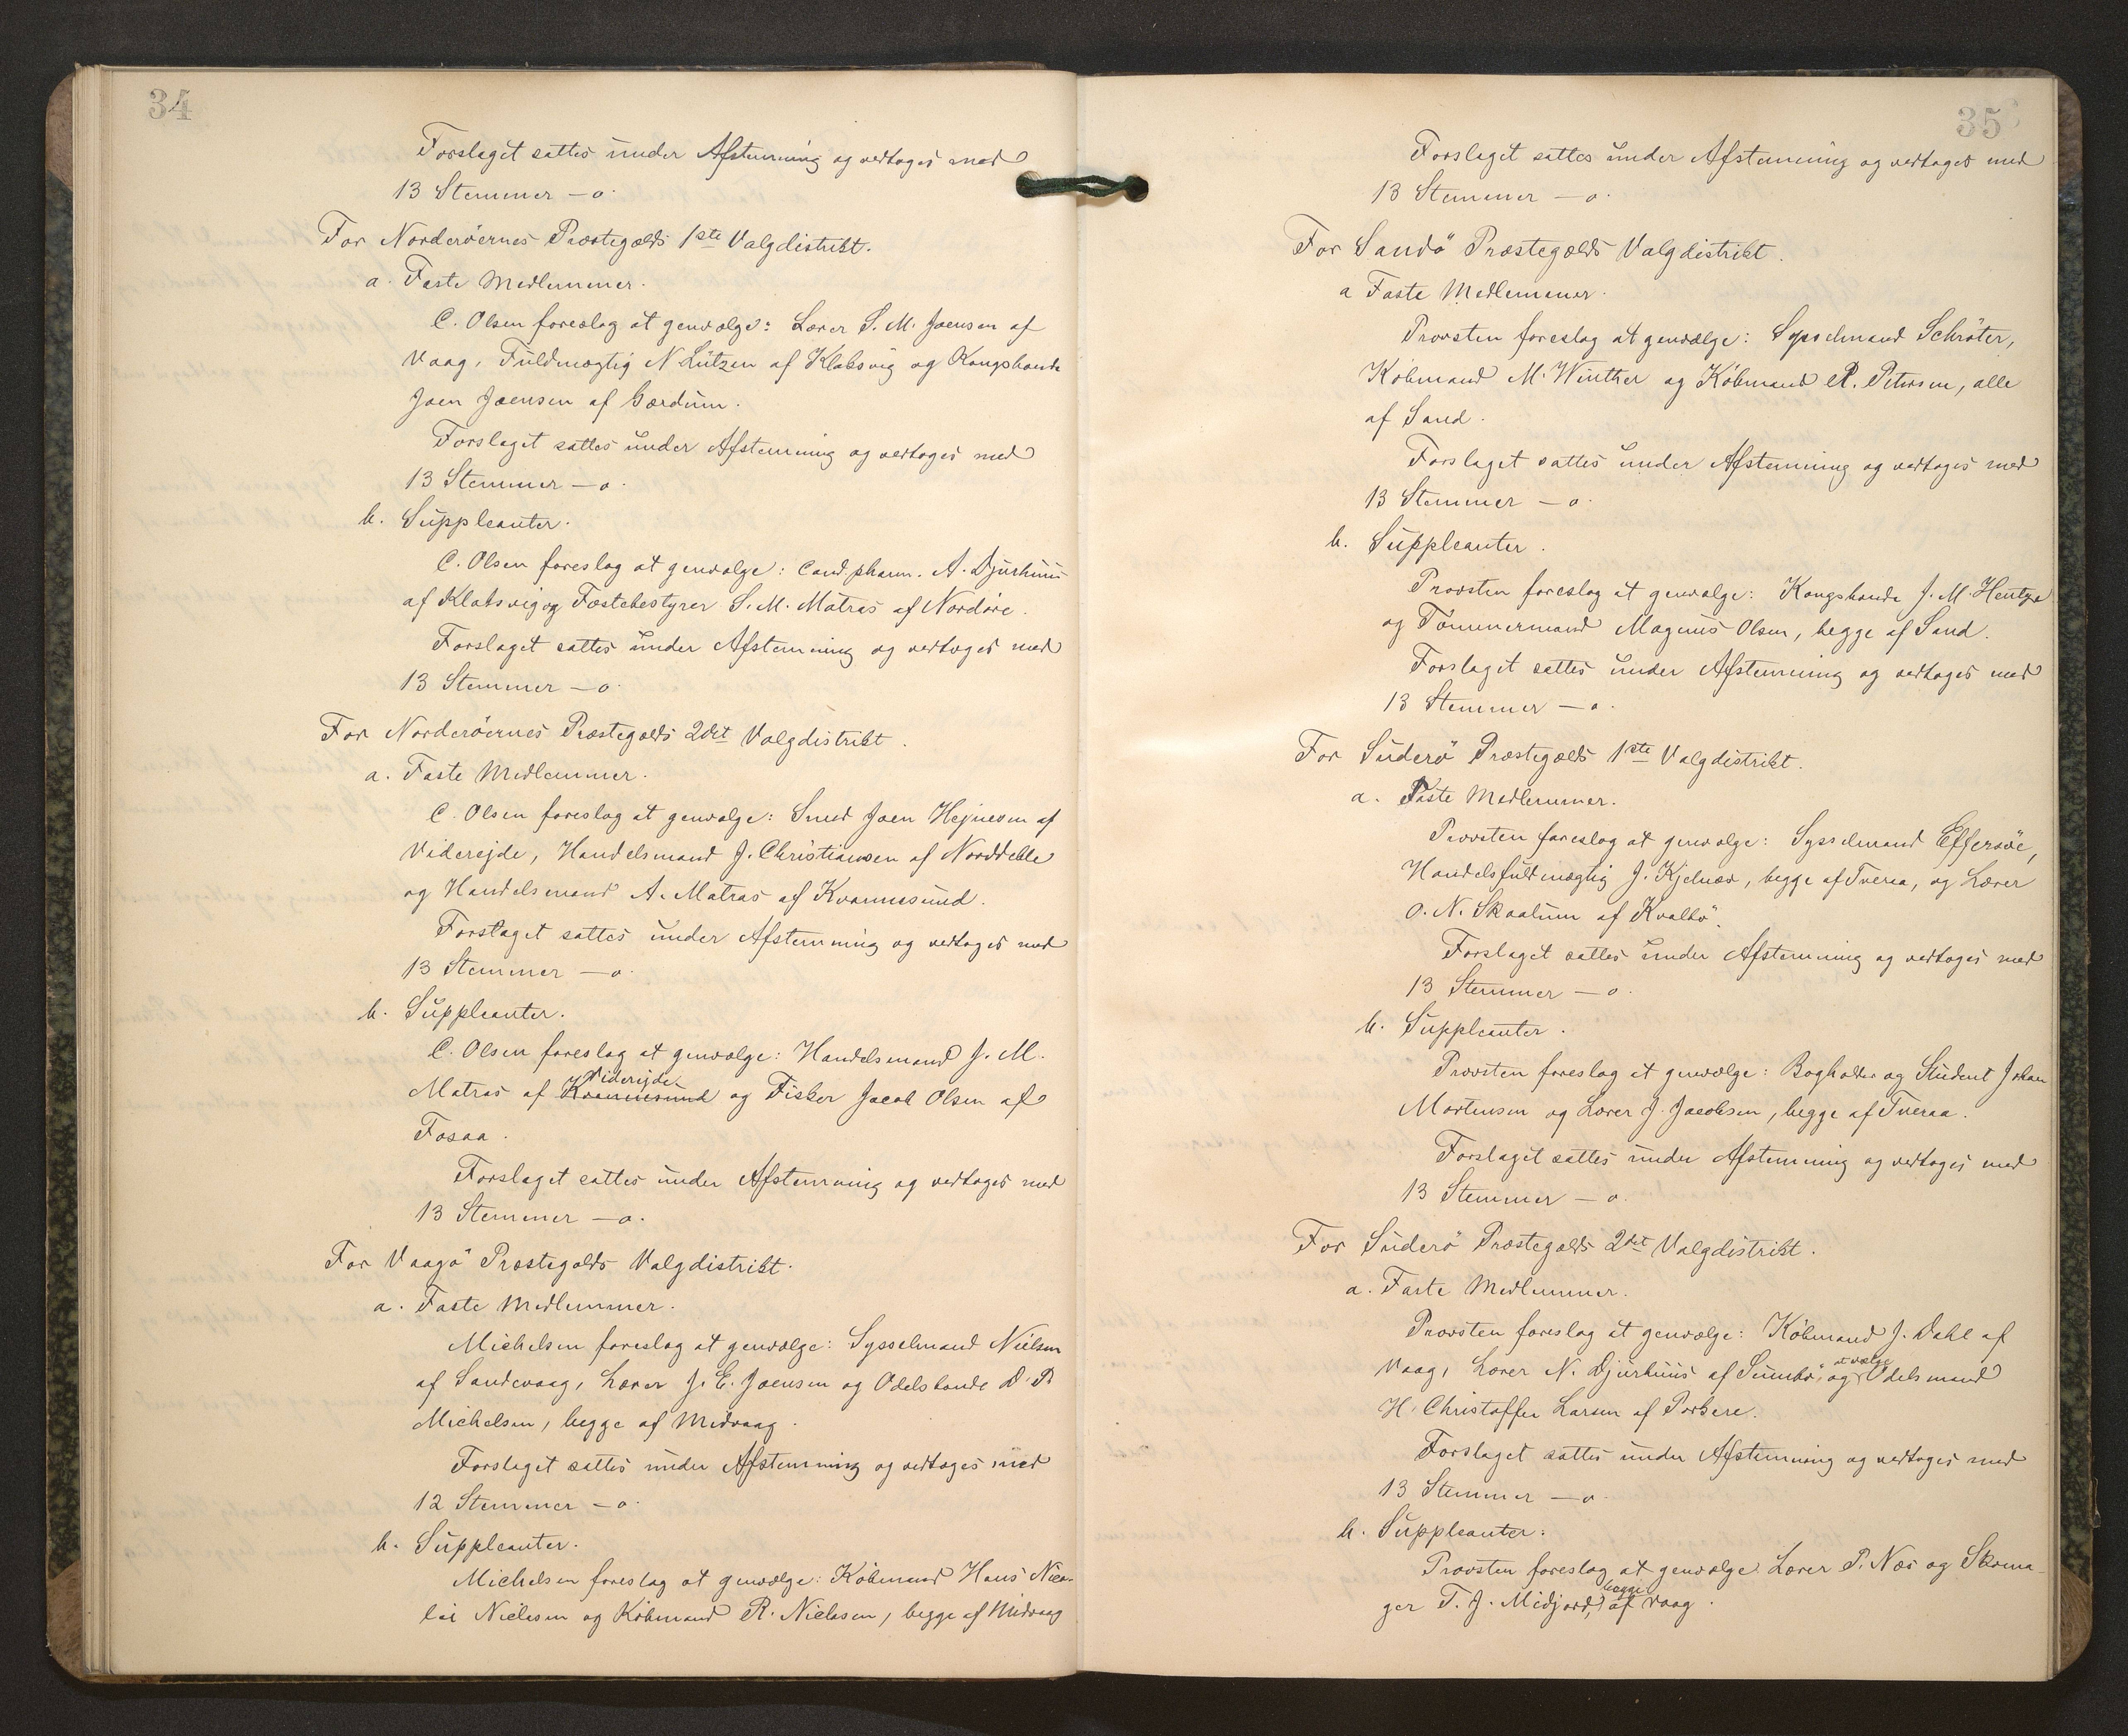 34
Forslaget sattes under Afstemning og vedtoges med
13 Stemmer – o.
For Norderöernes Præstegælds 1ste Valgdistrikt.
a. Faste Medlemmer.
C. Olsen foreslog at genvælge: Lærer S. M. Joensen af
Vaag, Fuldmægtig N Lützen af Klaksvig og Kongsbonde
Joen Joensen af Gærdum.
Forslaget sattes under Afstemning og vedtoges med
13 Stemmer – o.
b. Suppleanter.
C. Olsen foreslog at genvælge: Cand pharm. A. Djurhuus
af Klaksvig og Fæstebestyrer S. M. Matras af Nordöre.
Forslaget sattes under Afstemning og vedtoges med
13 Stemmer – o.
For Norderöernes Præstegælds 2det Valgdistrikt.
a. Faste Medlemmer.
C. Olsen foreslog at genvælge: Smed Joen Hejnesen af
Viderejde, Handelsmand J. Christiansen af Norddeble
og Handelsmand A. Matras af Kvannesund.
Forslaget sattes under Afstemning og vedtoges med
13 Stemmer – o.
b. Suppleanter.
C. Olsen foreslog at genvælge: Handelsmand J. M.
Matras af Kvannesund Viderejde og Fisker Jacob Olsen af
Fosaa.
Forslaget sattes under Afstemning og vedtoges med
13 Stemmer – o.
For Vaagö Præstegælds Valgdistrikt.
a. Faste Medlemmer.
Michelsen foreslog at genvælge: Sysselmand Nielsen
af Sandevaag, Lærer J. E. Joensen og Odelsbonde D. P.
Michelsen, begge af Midvaag.
Forslaget sattes under Afstemning og vedtoges med
12 Stemmer – o.
b. Suppleanter.
Michelsen foreslog at genvælge: Köbmand Hans Nico-
lai Nielsen og Köbmand R. Nielsen, begge af Midvaag
35
Forslaget sattes under Afstemning og vedtoges med
13 Stemmer – o.
For Sandö Præstegælds Valgdistrikt.
a Faste Medlemmer.
Provsten foreslog at genvælge: Sysselmand Schröter,
Köbmand M. Winther og Köbmand P. Petersen, alle
af Sand.
Forslaget sattes under Afstemning og vedtoges med
13 Stemmer – o.
b. Suppleanter.
Provsten foreslog at genvælge: Kongsbonde J. M. Hentze
og Tömmermand Magnus Olsen, begge af Sand.
Forslaget sattes under Afstemning og vedtoges med
13 Stemmer – o.
For Suderö Præstegælds 1ste Valgdistrikt.
a. Faste Medlemmer.
Provsten foreslog at genvælge: Sysselmand Effersöe,
Handelsfuldmægtig J. Kjelnæs, begge af Tveraa, og Lærer
O. N. Skaalum af Kvalbö.
Forslaget sattes under Afstemning og vedtoges med
13 Stemmer – o.
b. Suppleanter.
Provsten foreslog at genvælge: Bogholder og Student Johan
Mortensen og Lærer J. Jacobsen, begge af Tveraa.
Forslaget sattes under Afstemning og vedtoges med
13 Stemmer – o.
For Suderö Præstegælds 2det Valgdistrikt.
a. Faste Medlemmer.
Provsten foreslog at genvælge: Köbmand J. Dahl af
Vaag, Lærer N. Djurhuus af Sumbö, og at vælge Odelsmand
H. Christoffer Larsen af Porkere.
Forslaget sattes under Afstemning og vedtoges med
13 Stemmer – o.
b. Suppleanter:
Provsten foreslog at genvælge Lærer P. Næs og Skoma-
ger T. J. Midjord, begge af Vaag.